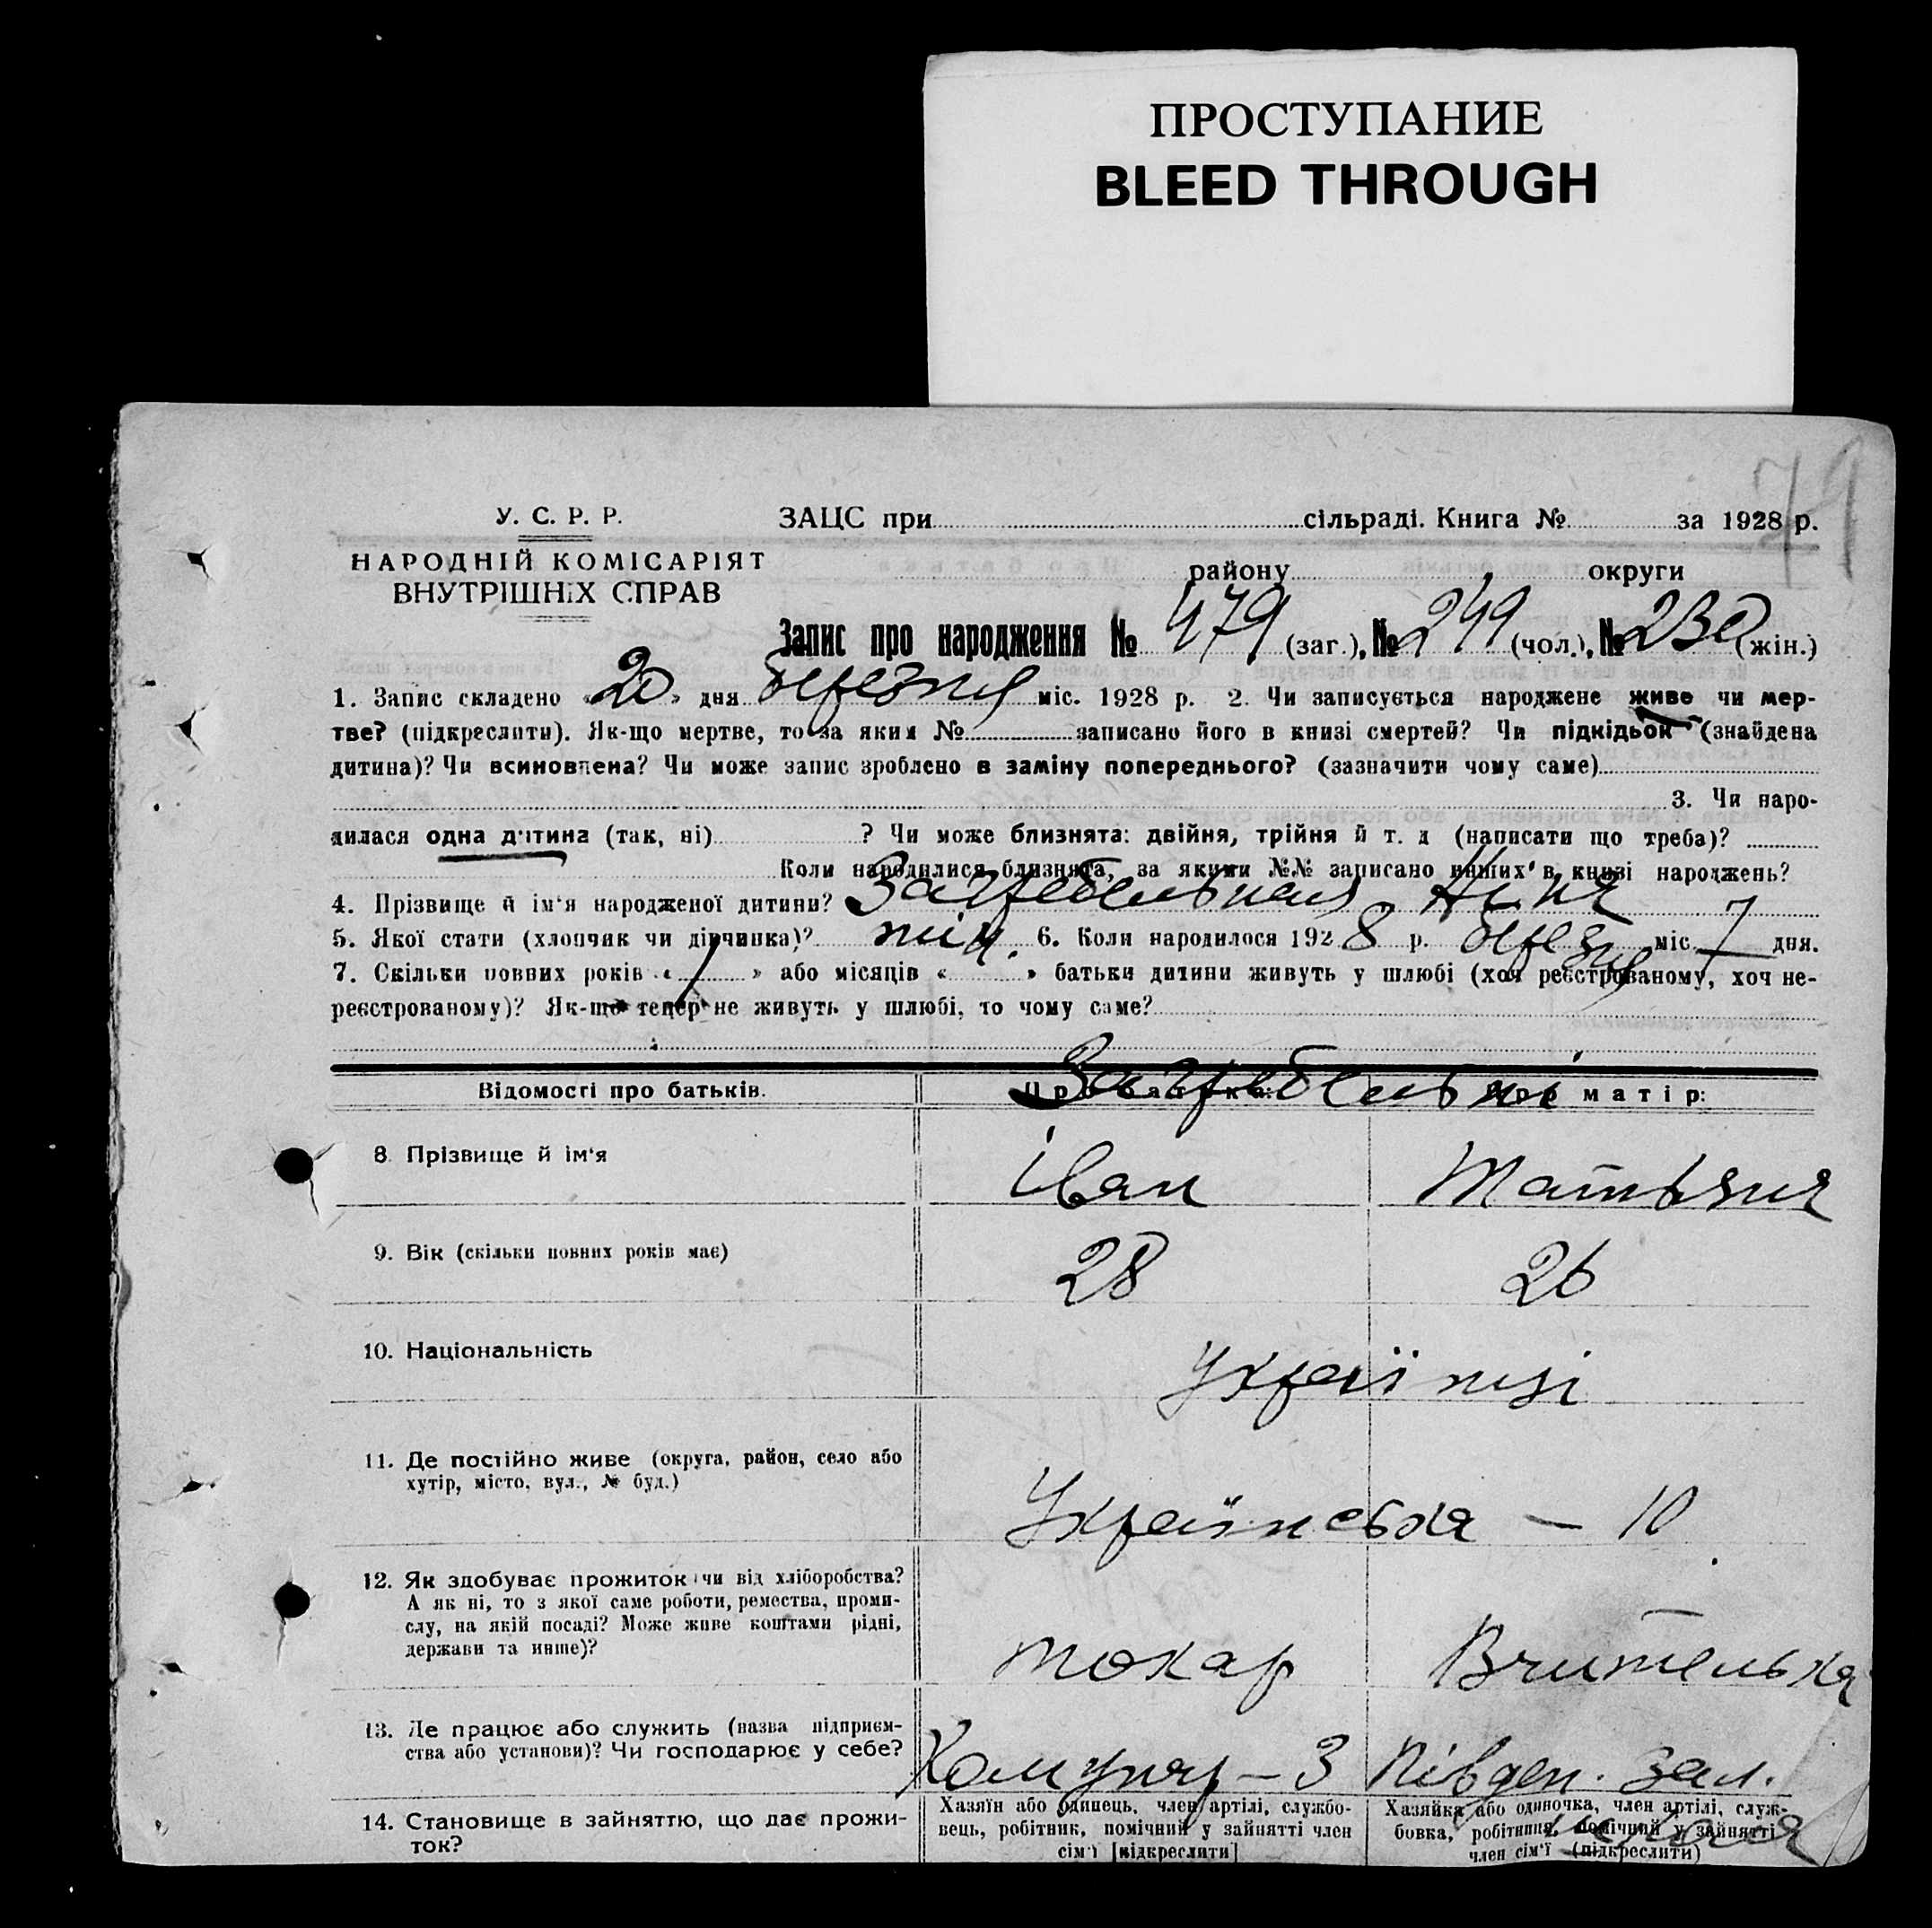 ПРОСТУПАНИЕ
BLEED THROUGH
79
У. С. Р. Р.
НАРОДНІЙ КОМІСАРІЯТ
ВНУТРІШНІХ СПРАВ
ЗАЦС при сільраді. Книга № за 1928 р.
району округи
Запис про народження № 479 (заг.), № 249 (чол.), № 230 (жін.)
1. Запис складено «20» дня Березня міс. 1928 р. 2. Чи записується народжене живе чи мер-
тве? (підкреслити). Як-що мертве, то за яким № записано його в книзі смертей? Чи підкідьок (знайдена
дитина)? Чи всиновлена? Чи може запис зроблено в заміну попереднього? (зазначити чому саме)
3. Чи наро-
дилася одна дитина (так, ні) ? Чи може близнята: двійня, трійня й т. д (написати що треба)?
Коли народилися близнята, за якими №№ записано инших в книзі народжень?
4. Прізвище й ім'я народженої дитини? Загребельная Ніна
5. Якої стати (хлопчик чи дівчинка)? жін. 6. Коли народилося 1928 р. березня міс. 7 дня.
7. Скільки повних років « 1 » або місяців « » батьки дитини живуть у шлюбі (хоч реєстрованому, хоч не-
реєстрованому)? Як-що тепер не живуть у шлюбі, то чому саме?
Загребельні
Відомості про батьків. Про батька: Про матір:
8. Прізвище й ім'я Іван Татьяна
9. Вік (скільки повних років має) 28 26
10. Національність Українці
11. Де постійно живе (округа, район, село або
хутір, місто, вул., № буд.)
Українська — 10
12. Як здобуває прожиток чи від хліборобства?
А як ні, то з якої саме роботи, ремества, проми-
слу, на якій посаді? Може живе коштами рідні,
держави та инше)?
токар Вчителька
13. Де працює або служить (назва підприєм-
ства або установи)? Чи господарює у себе?
Комунар — 3 Півден. зал.
школа
14. Становище в зайняттю, що дає прожи-
ток?
Хазяїн або одинець, член артілі, службо-
вець, робітник, помічний у зайнятті член
сім'ї [підкреслити]
Хазяйка або одиночка, член артілі, служ-
бовка, робітниця, помічний у зайнятті
член сім'ї (підкреслити)